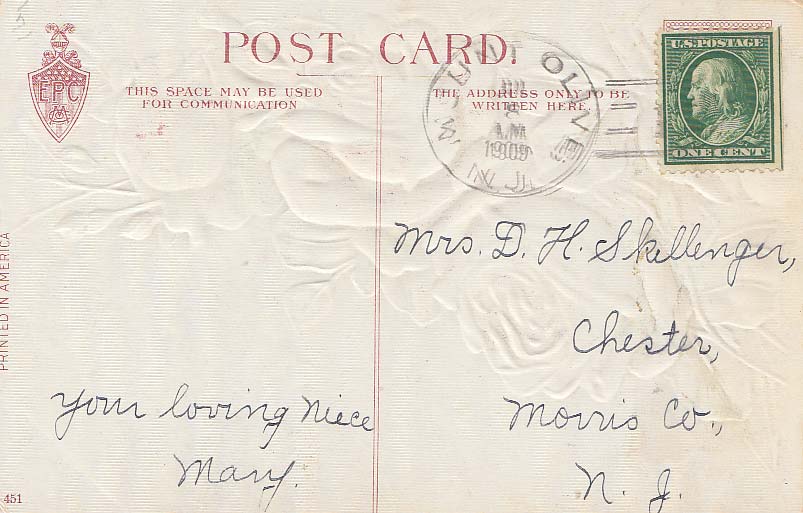 POST CARD.
EPC
THIS SPACE MAY BE USED
FOR COMMUNICATION
THE ADDRESS ONLY TO BE
WRITTEN HERE.
MOUNT OLIVE
AM
1909
N. J.
U.S. POSTAGE
ONE CENT
Mrs. D. H. Skellenger,
Chester,
Morris Co.,
N. J.
Your loving Niece
Mary.
PRINTED IN AMERICA
451